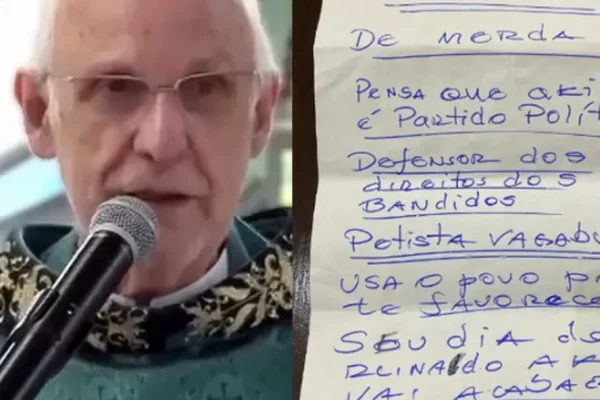 DE MERDA
PENSA QUE AKI
É PARTIDO POLÍT
DEFENSOR DOS
DIREITOS DOS
BANDIDOS
PETISTA VAGABU
USA O POVO P
TE FAVORECE
SEU DIA DE
REINALDO A
VAI ACABA